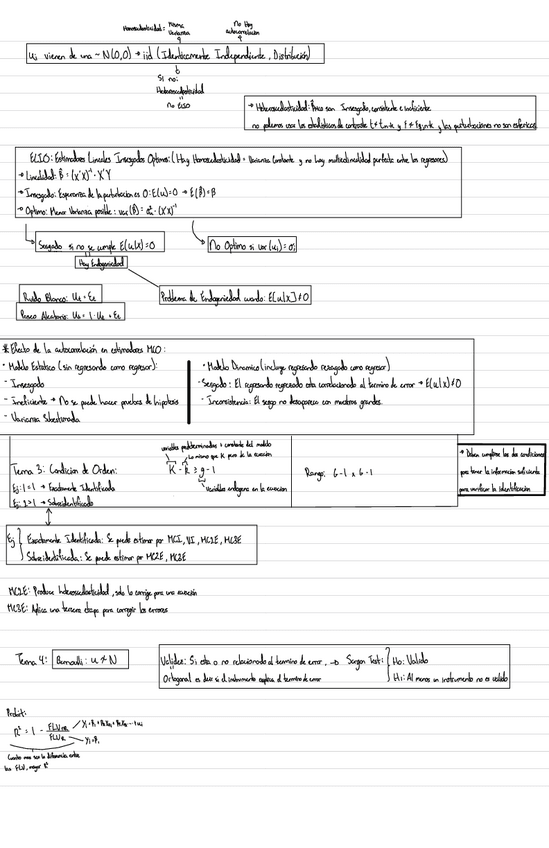 Homoscedasticidad: Misma Varianza
No Hay autocorrelación
ui vienen de una ~ N(0,0) → iid (Identicamente Independiente, Distribución)
Si no:
Heteroscedasticidad
no ELIO
→ Heteroscedasticidad: Pasa son Insesgado, consistente e ineficiente
no podemos usar los estadísticos de contraste t ≠ tn-k y F ≠ Fq,n-k y las perturbaciones no son esfericas
ELIO: Estimadores Lineales Insesgados Optimos: (Hay Homoscedasticidad = Varianza Constante y no hay multicolinealidad perfecta entre los regresores)
→ Linealidad: β̂ = (X'X)⁻¹ · X'Y
→ Insesgado: Esperanza de la perturbación es 0: E(u)=0 → E(β̂)=β
→ Optimo: Menor Varianza posible: var(β̂) = σ²u · (X'X)⁻¹
Sesgado si no se cumple E(u|x)=0
No Optimo si var(ui) = σi
Hay Endogeneidad
Ruido Blanco: Ut = Et
Problema de Endogeneidad cuando: E[u|x] ≠ 0
Paseo Aleatorio: Ut = 1 · Ut + Et
* Efecto de la autocorrelación en estimadores MCO:
· Modelo Estatico (sin regresando como regresor):
- Insesgado
- Ineficiente → No se puede hacer pruebas de hipotesis
- Varianza Subestimada
· Modelo Dinamico (incluye regresando rezagado como regresor)
- Sesgado: El regresando regresado esta correlacionado al termino de error → E(u|x) ≠ 0
- Inconsistencia: El sesgo no desaparece con muestras grandes.
variables predeterminadas + constante del modelo
Lo mismo que K pero de la ecuación
Tema 3: Condición de Orden:
K - k ≥ g - 1
Variables endogena en la ecuación
Ej: 1 = 1 → Exactamente Identificado
Ej: 2 > 1 → Sobreidentificado
Rango: G-1 x G-1
→ Deben cumplirse las dos condiciones
para tener la información suficiente
para verificar la identificación
Ej
Exactamente Identificada: Se puede estimar por MCI, VI, MC2E, MC3E
Sobreidentificada: Se puede estimar por MC2E, MC3E
MC2E: Produce heteroscedasticidad, solo lo corrige para una ecuación
MC3E: Aplica una tercera etapa para corregir los errores
Tema 4: Bernoulli: u ≁ N
Validez: Si esta o no relacionado al termino de error, → Sargan Test:
Ho: Valido
H1: Al menos un instrumento no es valido
Ortogonal es decir si el instrumento explica el termino de error
Probit:
R² = 1 -
Cuanto mas sea la diferencia entre
las FLV, mayor R²